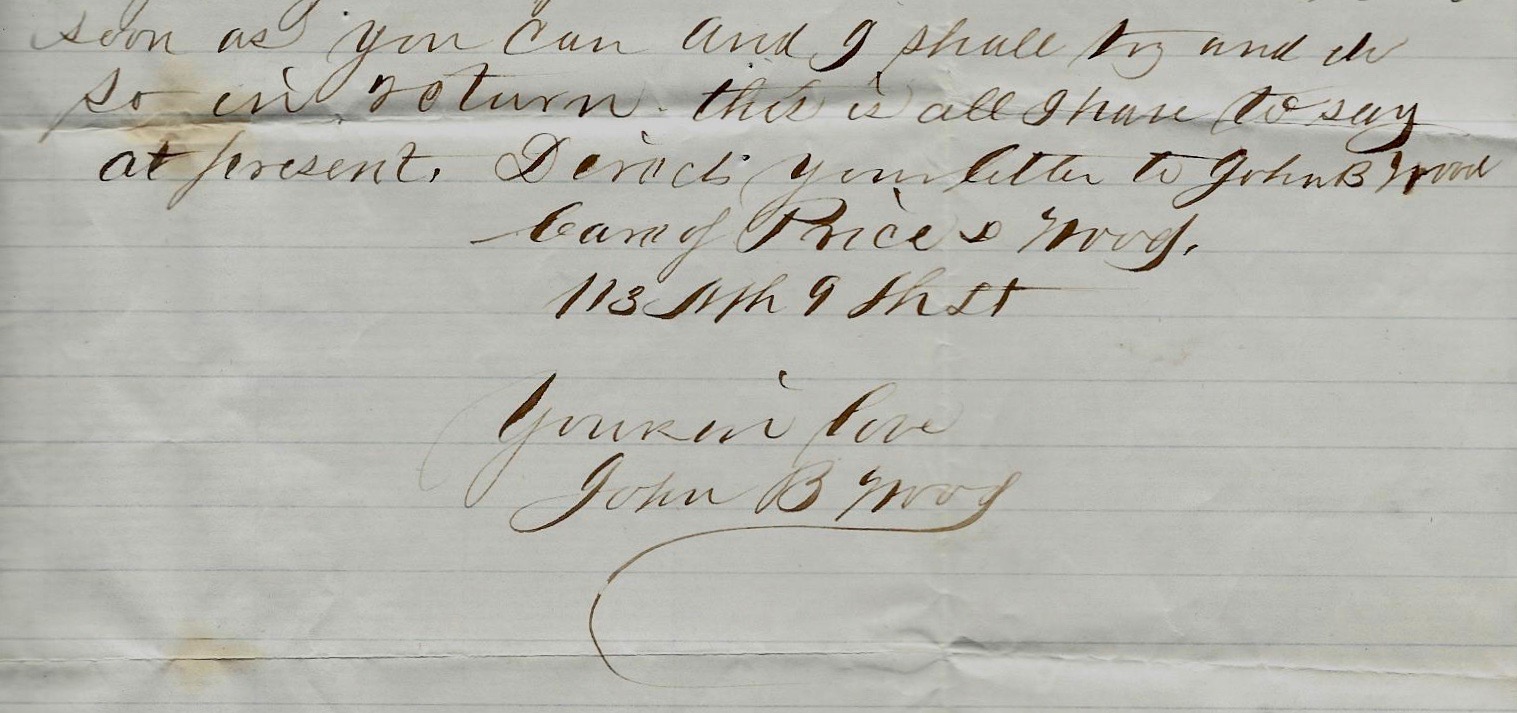 soon as you can and I shall try and do
so in return. this is all I have to say
at present. Direct your letter to John B Wood
Care of Price & Wood.
113 Nth 9th St
Yours in love
John B Wood